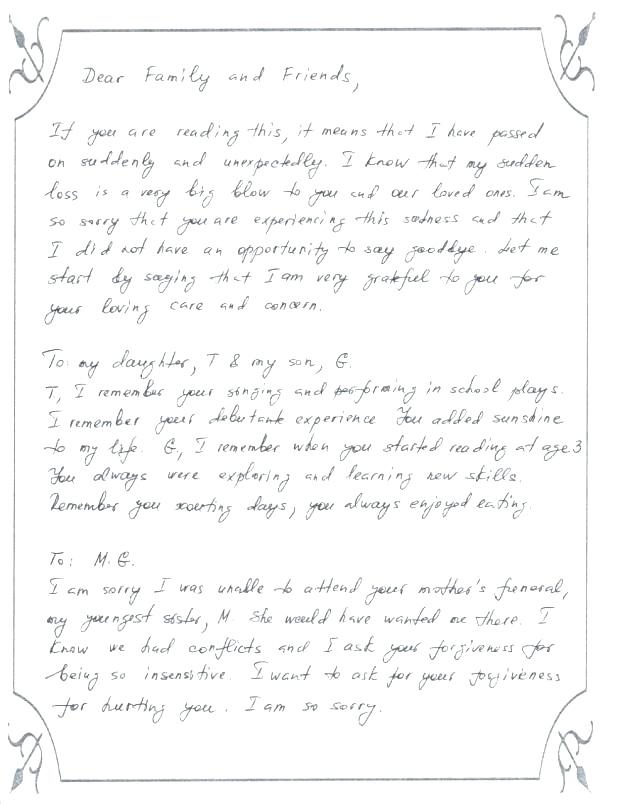 Dear Family and Friends,
If you are reading this, it means that I have passed
on suddenly and unexpectedly. I know that my sudden
loss is a very big blow to you and our loved ones. I am
so sorry that you are experiencing this sadness and that
I did not have an opportunity to say goodbye. Let me
start by saying that I am very grateful to you for
your loving care and concern.
To: my daughter, T & my son, G.
T, I remember your singing and performing in school plays.
I remember your debutante experience You added sunshine
to my life. G, I remember when you started reading at age 3
You always were exploring and learning new skills.
Remember you scouting days, you always enjoyed eating.
To: M. G.
I am sorry I was unable to attend your mother's funeral,
my youngest sister, M. She would have wanted me there. I
know we had conflicts and I ask your forgiveness for
being so insensitive. I want to ask for your forgiveness
for hurting you. I am so sorry.